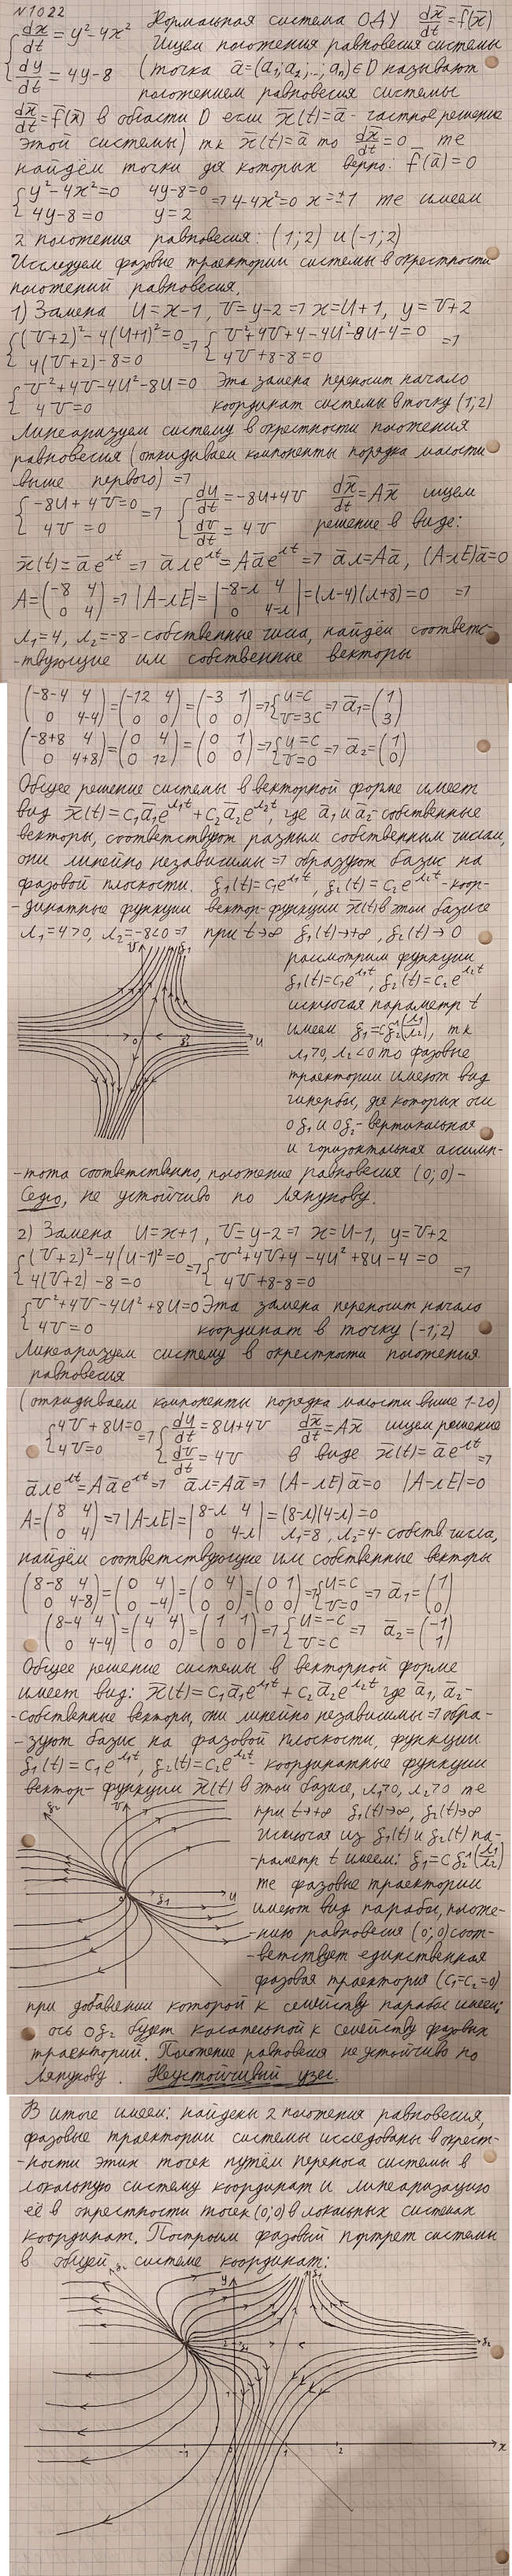 N1022
{ dx/dt = y²-4x²   Нормальная система ОДУ dx̄/dt = f̄(x̄)
Ищем положения равновесия системы
{ dy/dt = 4y-8   (точка ā=(a₁;a₂;...;aₙ)∈D называют
положением равновесия системы
dx̄/dt = f̄(x̄) в области D если x̄(t)=ā - частное решение
этой системы) тк x̄(t)=ā то dx̄/dt=0 те
найдём точки для которых верно: f̄(ā)=0
{ y²-4x²=0   4y-8=0   => 4-4x²=0 x=±1 те имеем
{ 4y-8=0   y=2
2 положения равновесия: (1;2) и (-1;2)
Исследуем фазовые траектории системы в окрестности
положений равновесия,
1) Замена U=x-1, V=y-2 => x=U+1, y=V+2
{ (V+2)²-4(U+1)²=0 => { V²+4V+4-4U²-8U-4=0 =>
{ 4(V+2)-8=0   { 4V+8-8=0
{ V²+4V-4U²-8U=0 Эта замена переносит начало
{ 4V=0   координат системы в точку (1;2)
Линеаризуем систему в окрестности положения
равновесия (откидываем компоненты порядка малости
выше первого) =>
{ -8U+4V=0 => { du/dt=-8U+4V   dx̄/dt=Ax̄ ищем
{ 4V=0   { dv/dt=4V   решение в виде:
x̄(t)=āe^λt => āλe^λt=Aāe^λt => āλ=Aā, (A-λE)ā=0
A=(-8 4; 0 4) => |A-λE|=|-8-λ 4; 0 4-λ|=(λ-4)(λ+8)=0 =>
λ₁=4, λ₂=-8 - собственные числа, найдём соответс-
-твующие им собственные векторы
(-8-4 4; 0 4-4)=(-12 4; 0 0)=(-3 1; 0 0) => { U=C; V=3C => ā₁=(1; 3)
(-8+8 4; 0 4+8)=(0 4; 0 12)=(0 1; 0 0) => { U=C; V=0 => ā₂=(1; 0)
Общее решение системы в векторной форме имеет
вид x̄(t)=C₁ā₁e^λ₁t+C₂ā₂e^λ₂t, где ā₁ и ā₂-собственные
векторы, соответствуют разным собственным числам,
они линейно независимы => образуют базис на
фазовой плоскости. ξ₁(t)=C₁e^λ₁t, ξ₂(t)=C₂e^λ₂t - коор-
-динатные функции вектор-функции x̄(t) в этом базисе
λ₁=4>0, λ₂=-8<0 => при t→∞ ξ₁(t)→+∞, ξ₂(t)→0
V ξ₁
0 ξ₂ U
рассмотрим функции
ξ₁(t)=C₁e^λ₁t, ξ₂(t)=C₂e^λ₂t
исключая параметр t
имеем ξ₁=Cξ₂^(λ₁/λ₂), тк
λ₁>0, λ₂<0 то фазовые
траектории имеют вид
гипербол, для которых оси
0ξ₁ и 0ξ₂-вертикальная
и горизонтальная асимп-
-тота соответственно, положение равновесия (0;0)-
Седло, не устойчиво по Ляпунову.
2) Замена U=x+1, V=y-2 => x=U-1, y=V+2
{ (V+2)²-4(U-1)²=0 => { V²+4V+4-4U²+8U-4=0 =>
{ 4(V+2)-8=0   { 4V+8-8=0
{ V²+4V-4U²+8U=0 Эта замена переносит начало
{ 4V=0   координат в точку (-1;2)
Линеаризуем систему в окрестности положения
равновесия
(откидываем компоненты порядка малости выше 1-го)
{ 4V+8U=0 => { dy/dt=8U+4V   dx̄/dt=Ax̄ ищем решение
{ 4V=0   { dv/dt=4V   в виде x̄(t)=āe^λt =>
āλe^λt=Aāe^λt => āλ=Aā => (A-λE)ā=0 |A-λE|=0
A=(8 4; 0 4) => |A-λE|=|8-λ 4; 0 4-λ|=(8-λ)(4-λ)=0
λ₁=8, λ₂=4-собств. числа,
найдём соответствующие им собственные векторы
(8-8 4; 0 4-8)=(0 4; 0 -4)=(0 4; 0 0)=(0 1; 0 0) => { U=C; V=0 => ā₁=(1; 0)
(8-4 4; 0 4-4)=(4 4; 0 0)=(1 1; 0 0) => { U=-C; V=C => ā₂=(-1; 1)
Общее решение системы в векторной форме
имеет вид: x̄(t)=C₁ā₁e^λ₁t+C₂ā₂e^λ₂t где ā₁, ā₂-
-собственные векторы, они линейно независимы => обра-
-зуют базис на фазовой плоскости, функции
ξ₁(t)=C₁e^λ₁t, ξ₂(t)=C₂e^λ₂t - координатные функции
вектор-функции x̄(t) в этом базисе, λ₁>0, λ₂>0 те
ξ₂ V
0 ξ₁ U
при t→+∞ ξ₁(t)→∞, ξ₂(t)→∞
Исключая из ξ₁(t) и ξ₂(t) па-
-раметр t имеем: ξ₁=Cξ₂^(λ₁/λ₂)
те фазовые траектории
имеют вид парабол, положе-
-нию равновесия (0;0) соот-
-ветствует единственная
фазовая траектория (C₁=C₂=0)
при добавлении которой к семейству парабол имеем;
ось 0ξ₂ будет касательной к семейству фазовых
траекторий. Положение равновесия не устойчиво по
Ляпунову. Неустойчивый узел.
В итоге имеем: найдены 2 положения равновесия,
фазовые траектории системы исследованы в окрест-
-ности этих точек путём переноса системы в
локальную систему координат и линеаризацию
её в окрестности точек (0;0) в локальных системах
координат. Построим фазовый портрет системы
в общей системе координат:
ξ₂ y ξ₁
2 ξ₁ ξ₂
1
-1 0 1 2 x